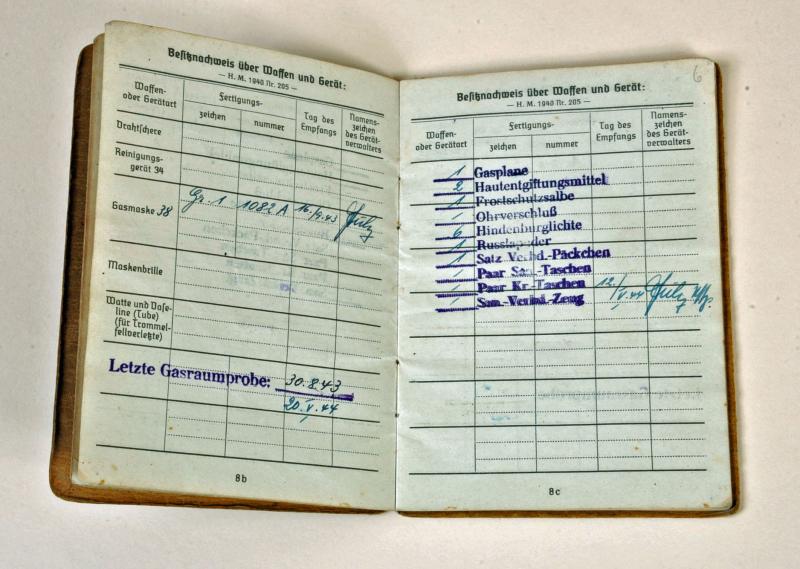 Besitznachweis über Waffen und Gerät:
— H. M. 1940 Nr. 205 —
Waffen-
oder Gerätart
Fertigungs-
zeichen
nummer
Tag des
Empfangs
Namens-
zeichen
des Gerät-
verwalters
Drahtschere
Reinigungs-
gerät 34
Gasmaske 38 Gr. 1 1082 A
Maskenbrille
Watte und Vase-
line (Tube)
(für Trommel-
fellverletzte)
Letzte Gasraumprobe: 30.8.43
20.V.44
8b
6
Besitznachweis über Waffen und Gerät:
— H. M. 1940 Nr. 205 —
Waffen-
oder Gerätart
Fertigungs-
zeichen
nummer
Tag des
Empfangs
Namens-
zeichen
des Gerät-
verwalters
1 Gasplane
2 Hautentgiftungsmittel
1 Frostschutzsalbe
1 Ohrverschluß
6 Hindenburglichte
1 Russlapuder
1 Satz Verbd.-Päckchen
1 Paar San.-Taschen
1 Paar Kr.-Taschen 12/V.44
1 San.-Verbd.-Zeug
8c